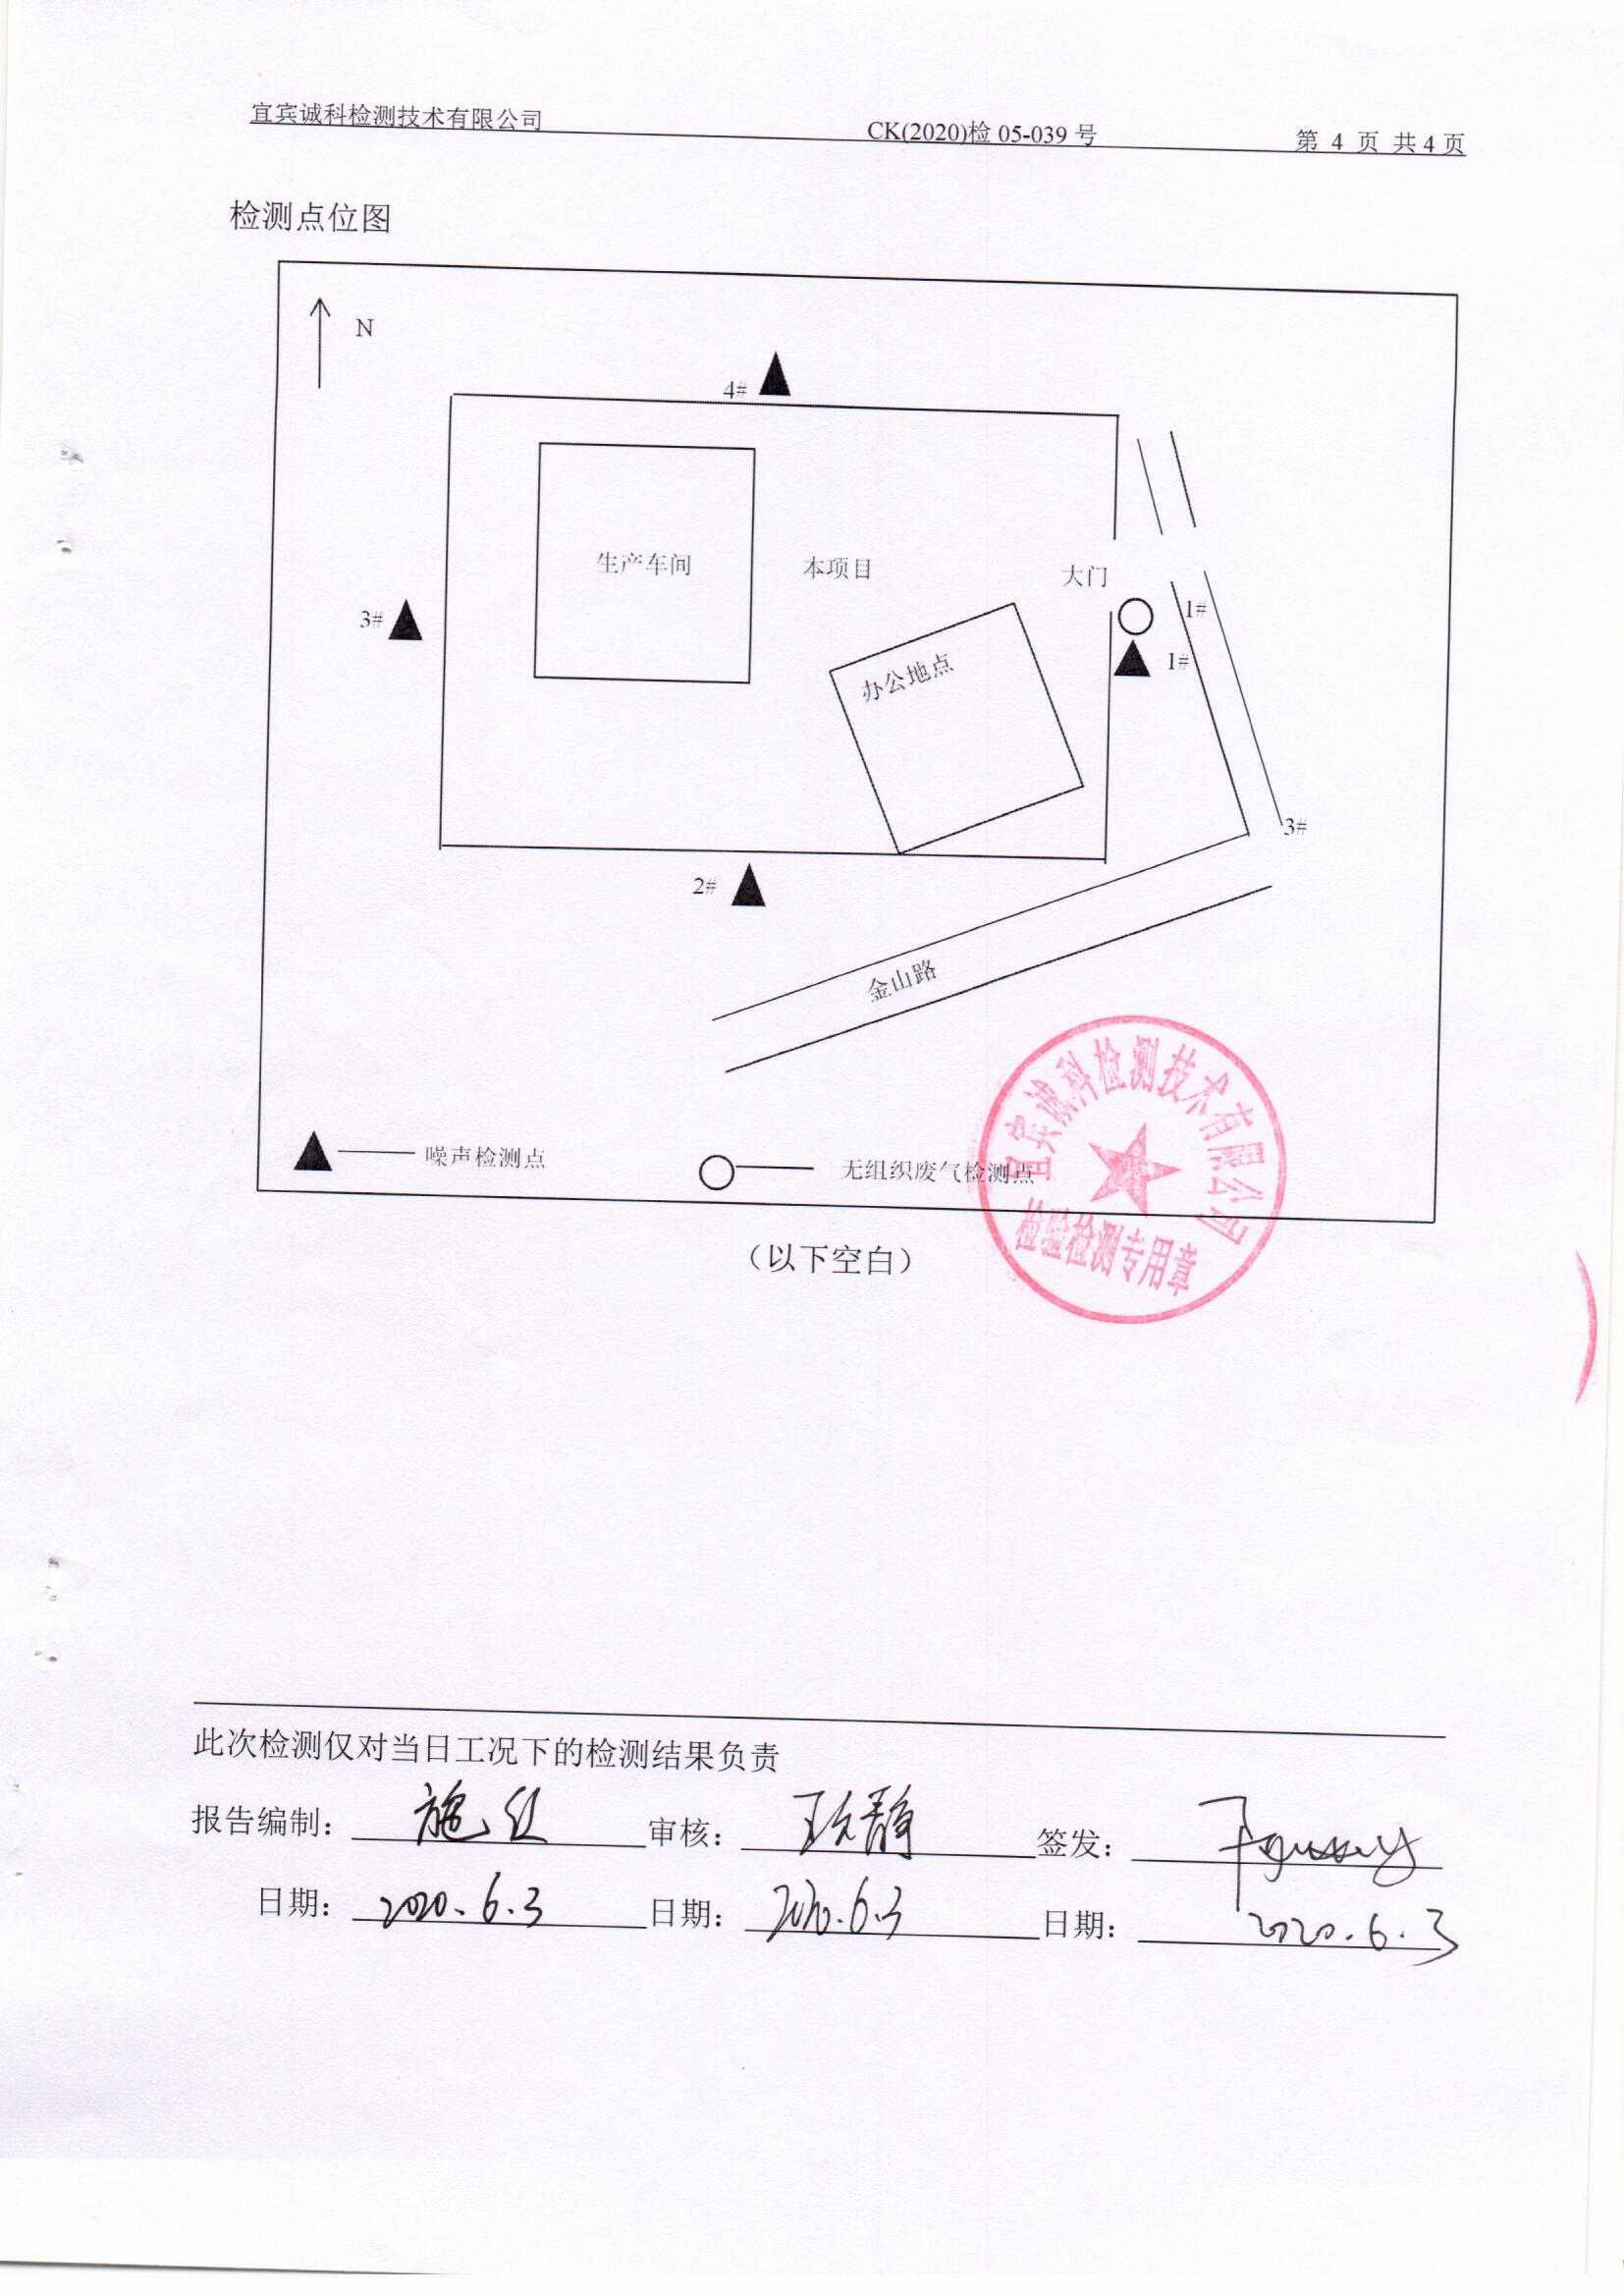 宜宾诚科检测技术有限公司 CK(2020)检 05-039 号 第 4 页 共 4 页
检测点位图
N
4#
生产车间 本项目 大门
3# 1#
办公地点 1#
3#
2#
金山路
噪声检测点 无组织废气检测点
宜宾诚科检测技术有限公司
检验检测专用章
（以下空白）
此次检测仅对当日工况下的检测结果负责
报告编制： 施 审核： 静 签发：
日期： 2020.6.3 日期： 2020.6.3 日期： 2020.6.3